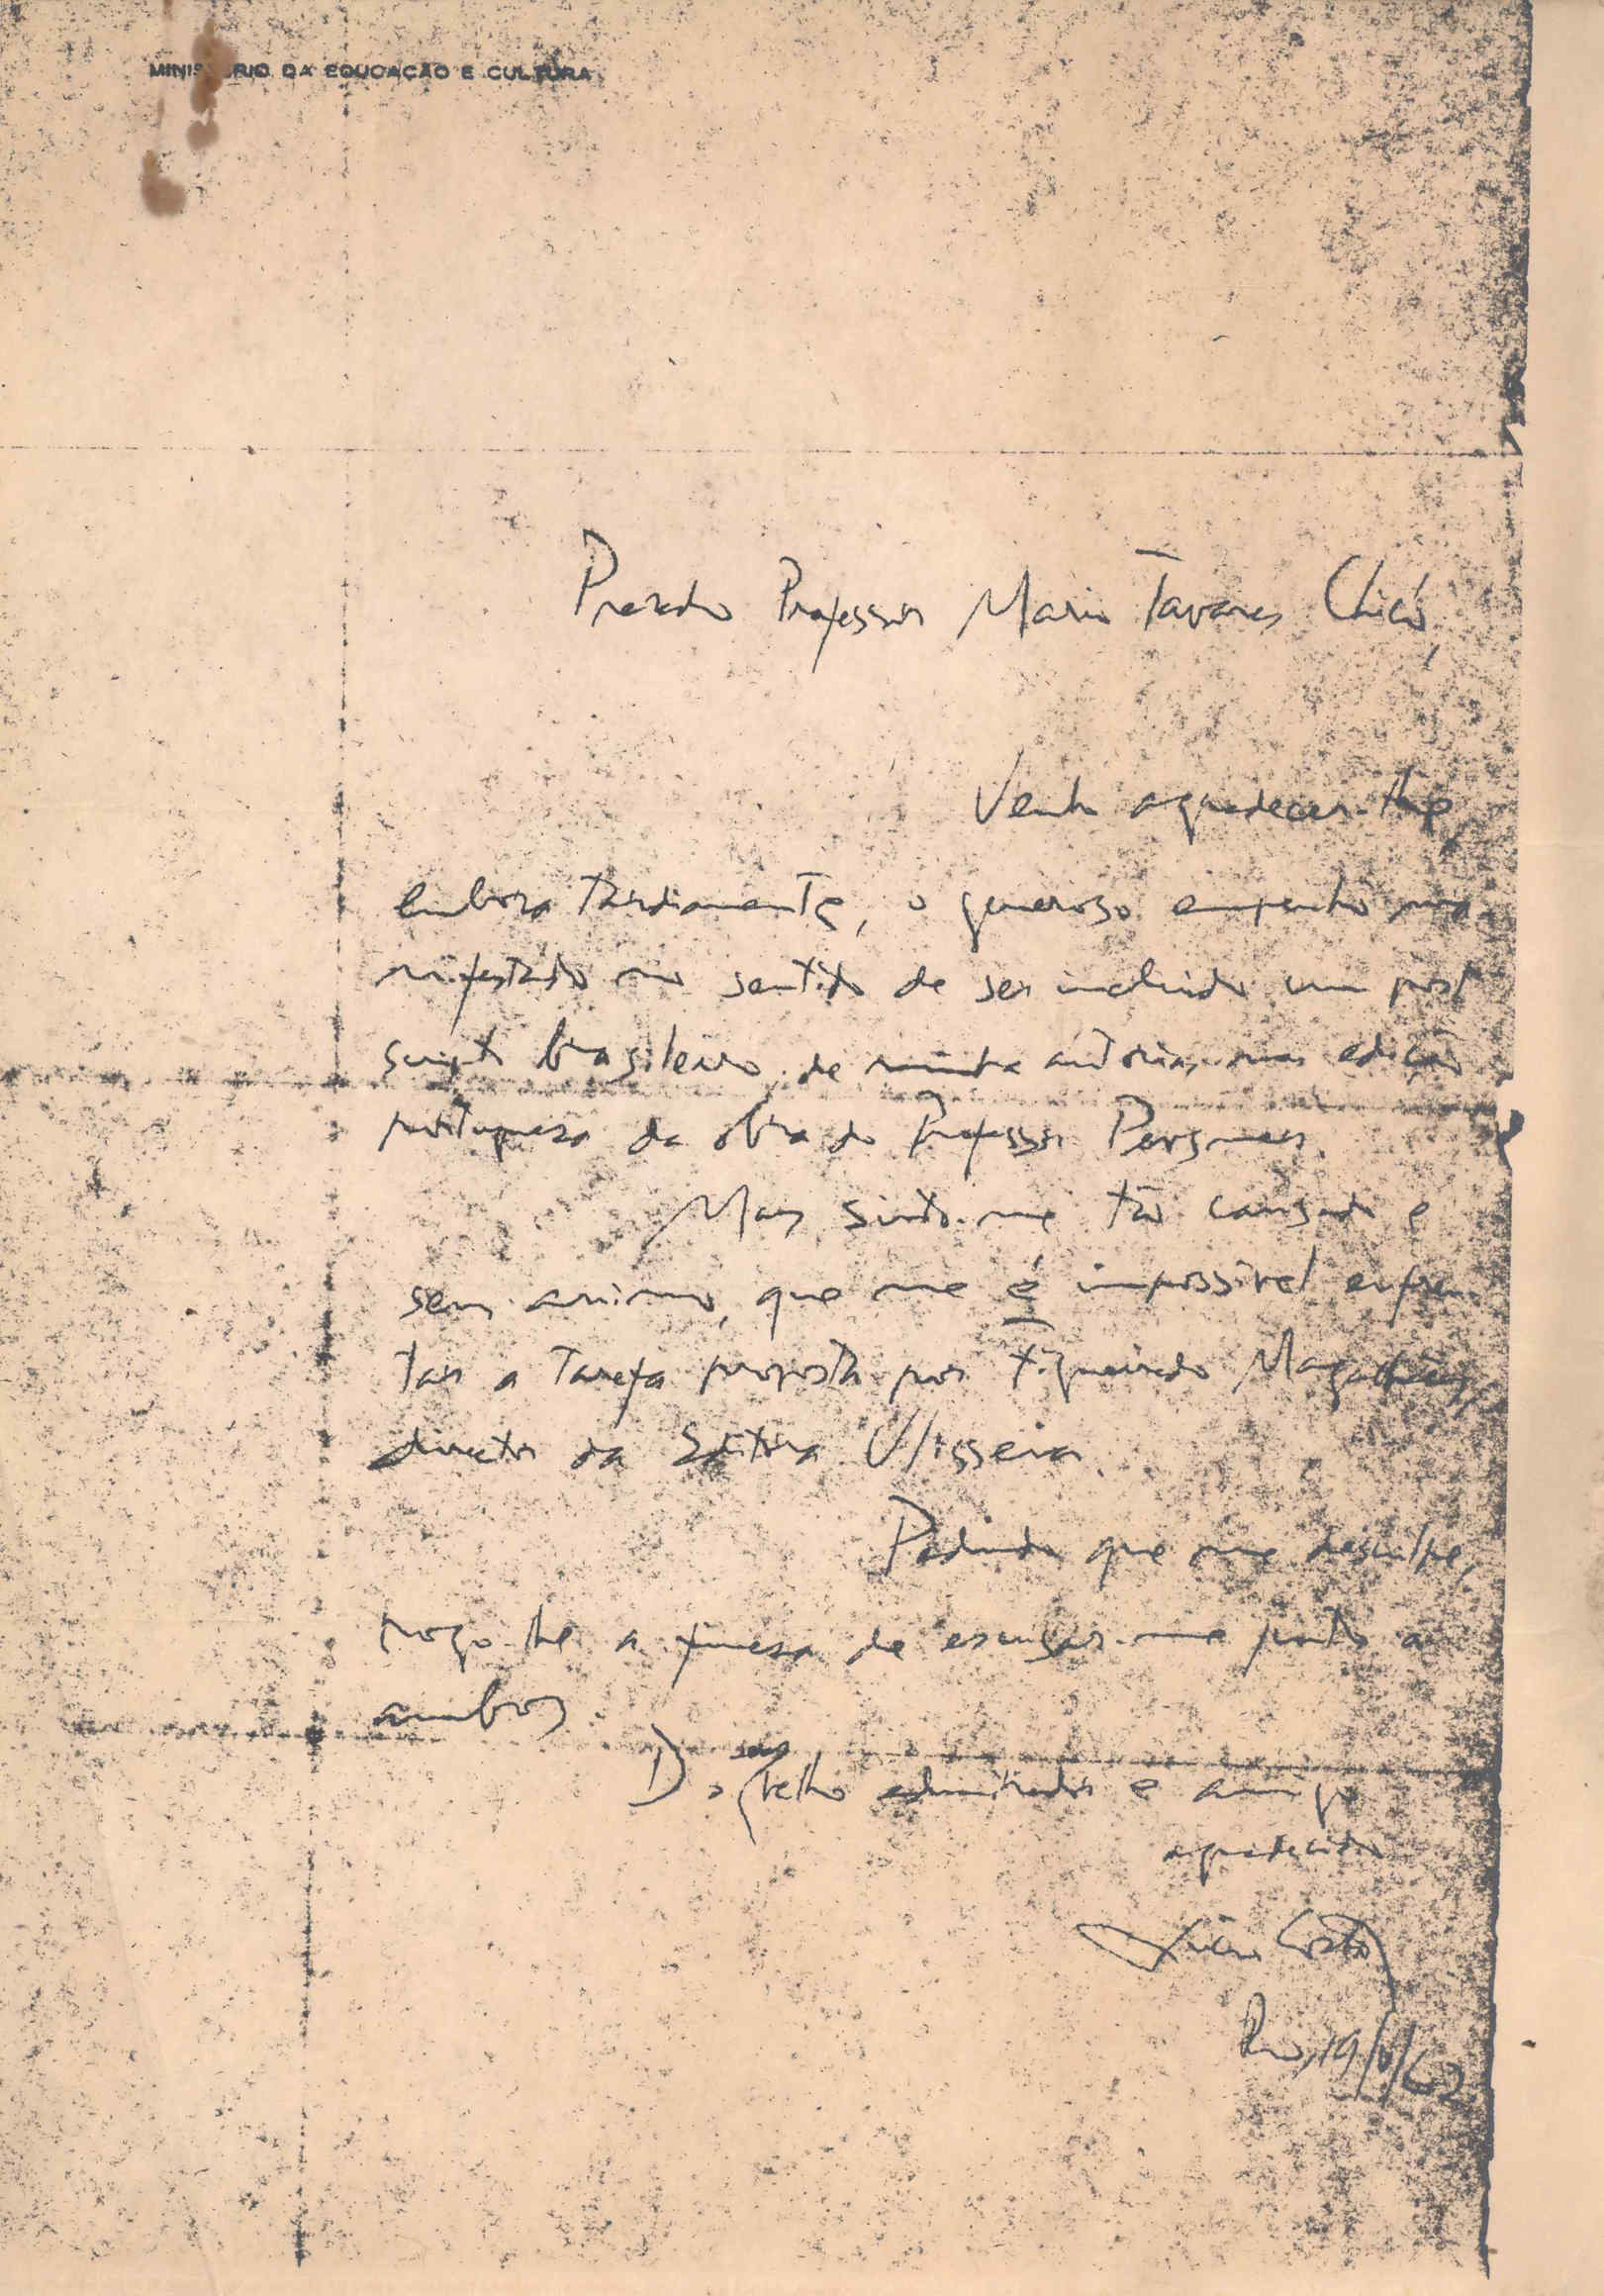 MINISTÉRIO DA EDUCAÇÃO E CULTURA
Prezado Professor Mario Tavares Chicó,
Venho agradecer-lhe,
embora tardiamente, o generoso empenho ma-
nifestado no sentido de ser incluido um post
scripto brasileiro, de minha autoria, na edição
portuguesa da obra do Professor Pevsner.
Mas sinto-me tão cansado e
sem animo, que me é impossivel enfren-
tar a tarefa proposta por Figueiredo Magalhães,
director da Editora Ulisseia.
Pedindo que me desculpe,
rogo-lhe a fineza de escusar-me junto a
ambos
D seu
velho admirador e amigo
agradecido
Lucio Costa
Rio, 19/ /62